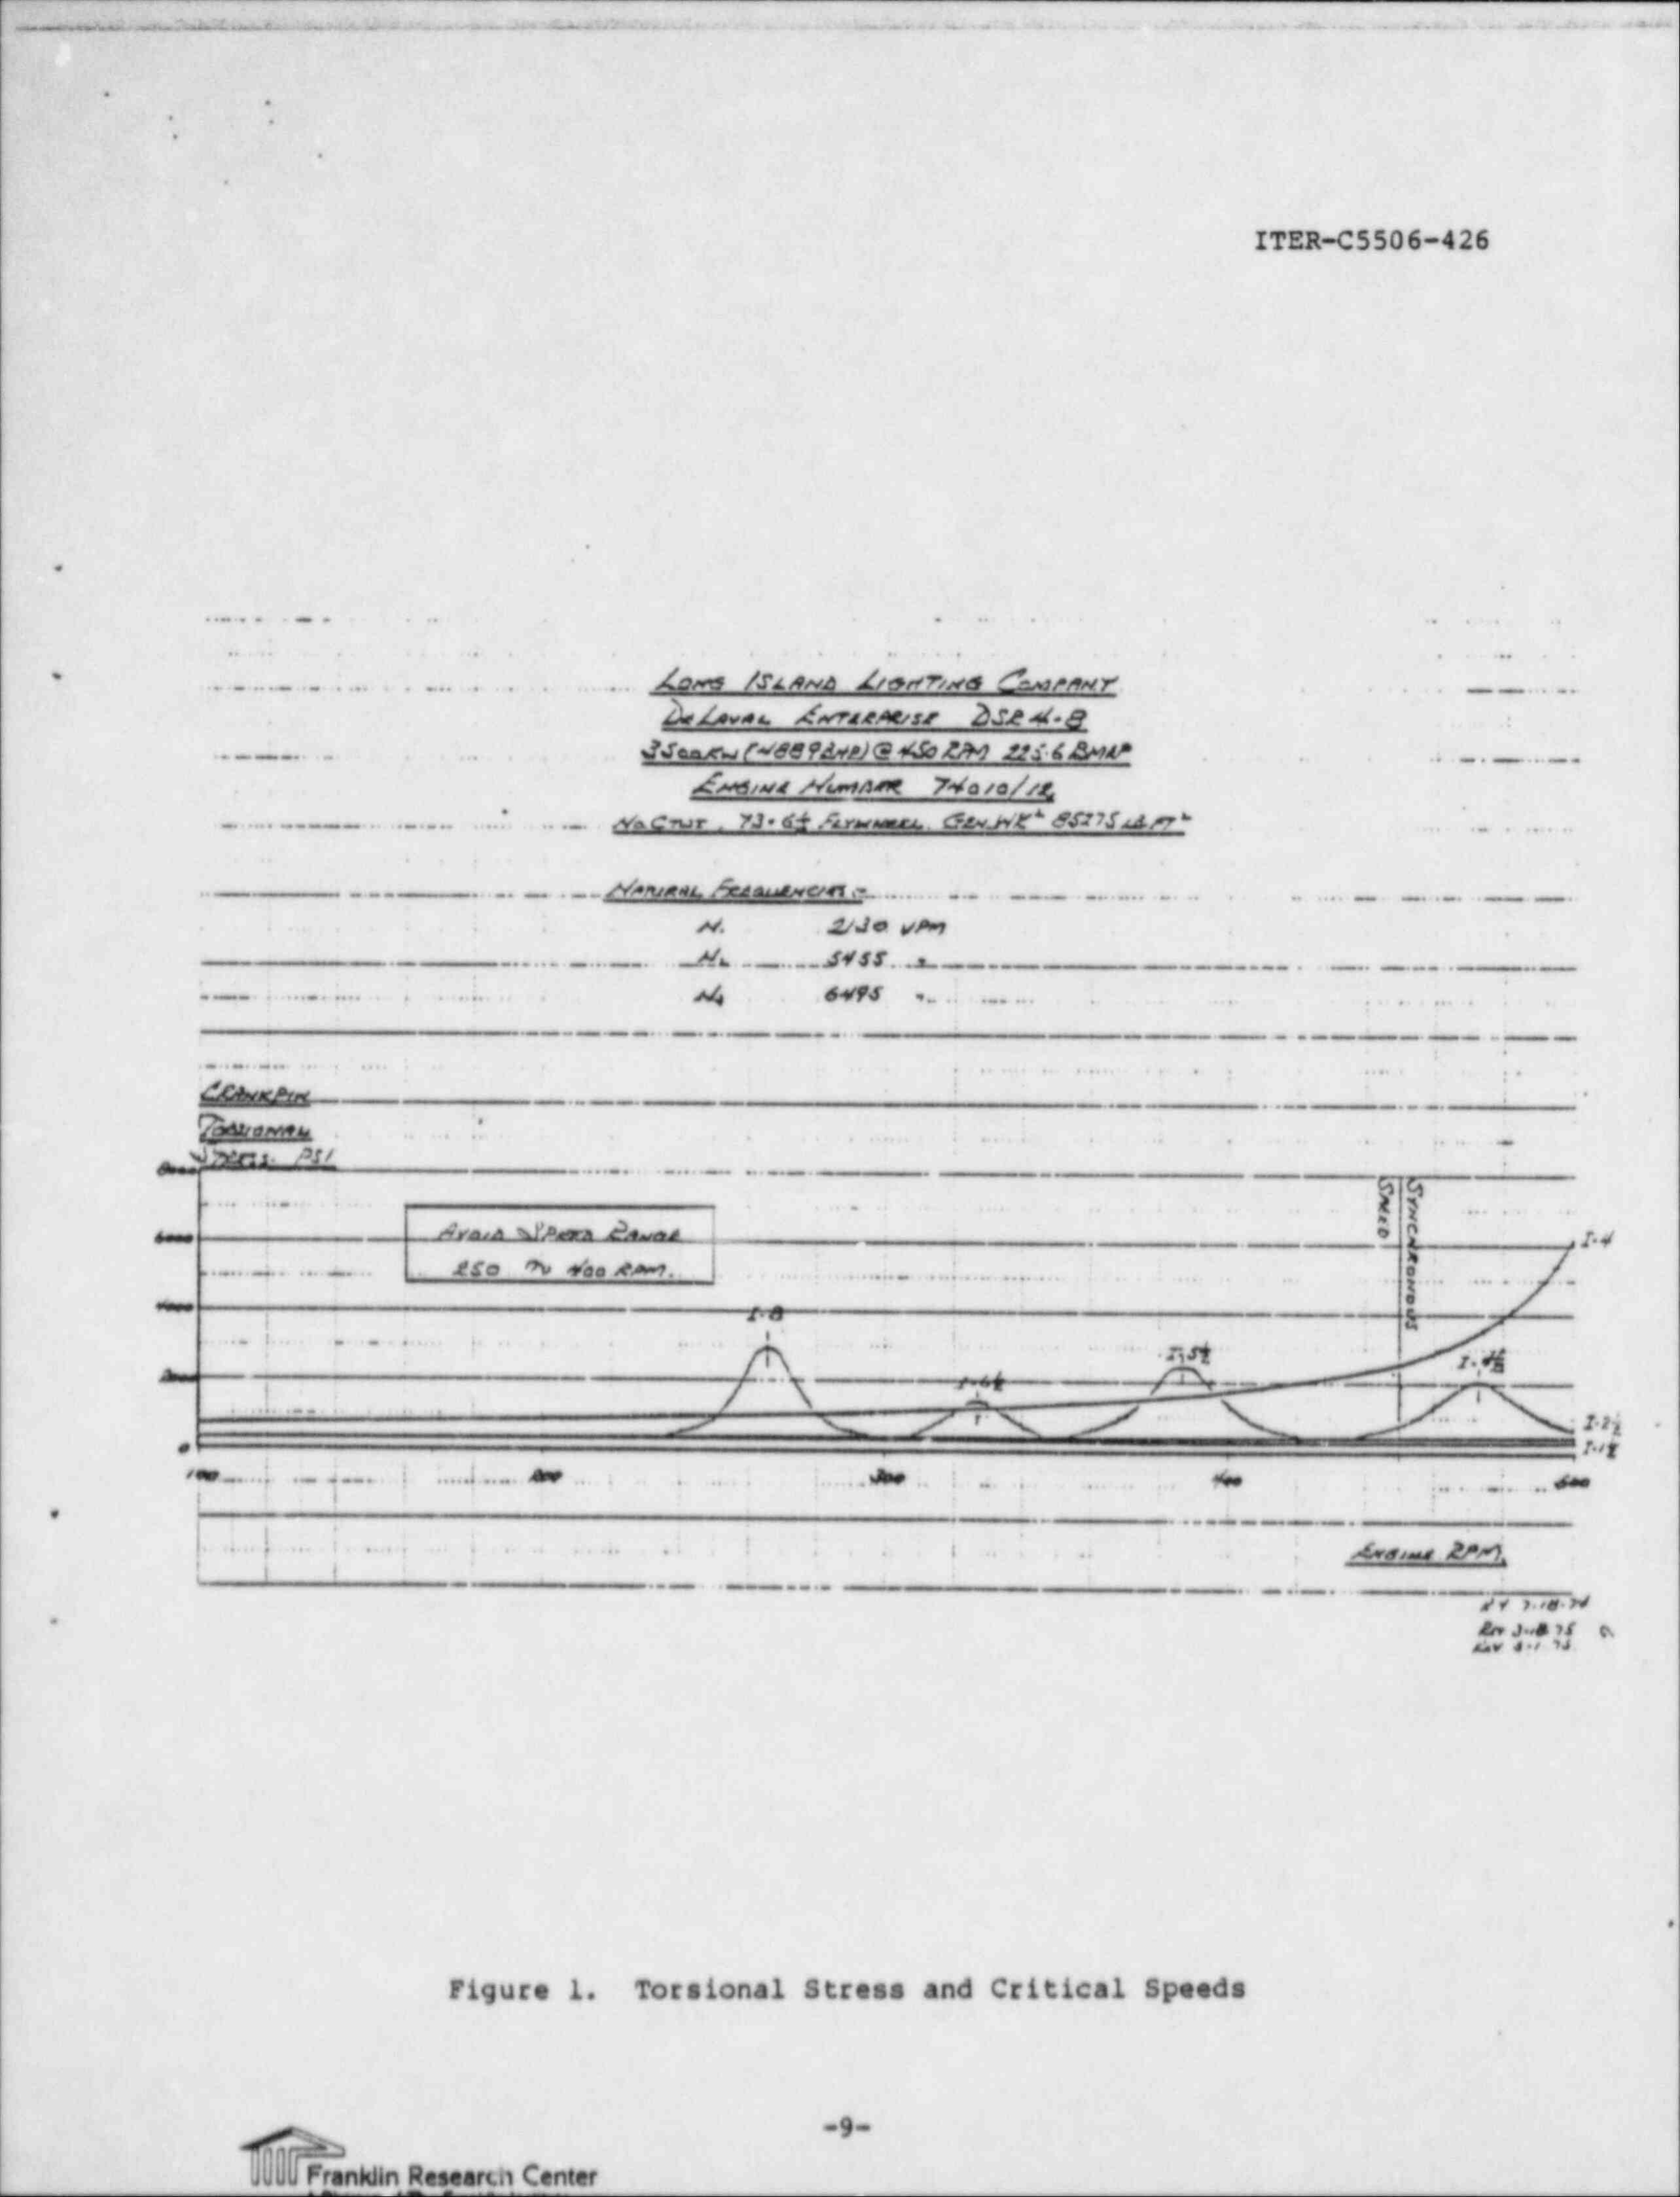 ITER-C5506-426
LONG ISLAND LIGHTING COMPANY
DELAVAL ENTERPRISE DSR 4-8
3500KW (4889BHP) @ 450 RPM 225.6 BMEP
ENGINE NUMBER 74010/12
NO CTWT. 73-6½ FLYWHEEL. GEN.WK² 85275 LB FT²
NATURAL FREQUENCIES:-
N₁ 2130 VPM
N₂ 5455 "
6495 "
CRANKPIN
TORSIONAL
STRESS. PSI
8000
6000
4000
2000
0
AVOID SPEED RANGE
250 TO 400 RPM.
SYNCHRONOUS
SPEED
I-4
I-8
I-5½
I-4½
I-6½
I-2½
I-1½
100 200 300 400 500
ENGINE RPM.
7-18-74
REV 3-18-75
REV
Figure 1. Torsional Stress and Critical Speeds
-9-
Franklin Research Center